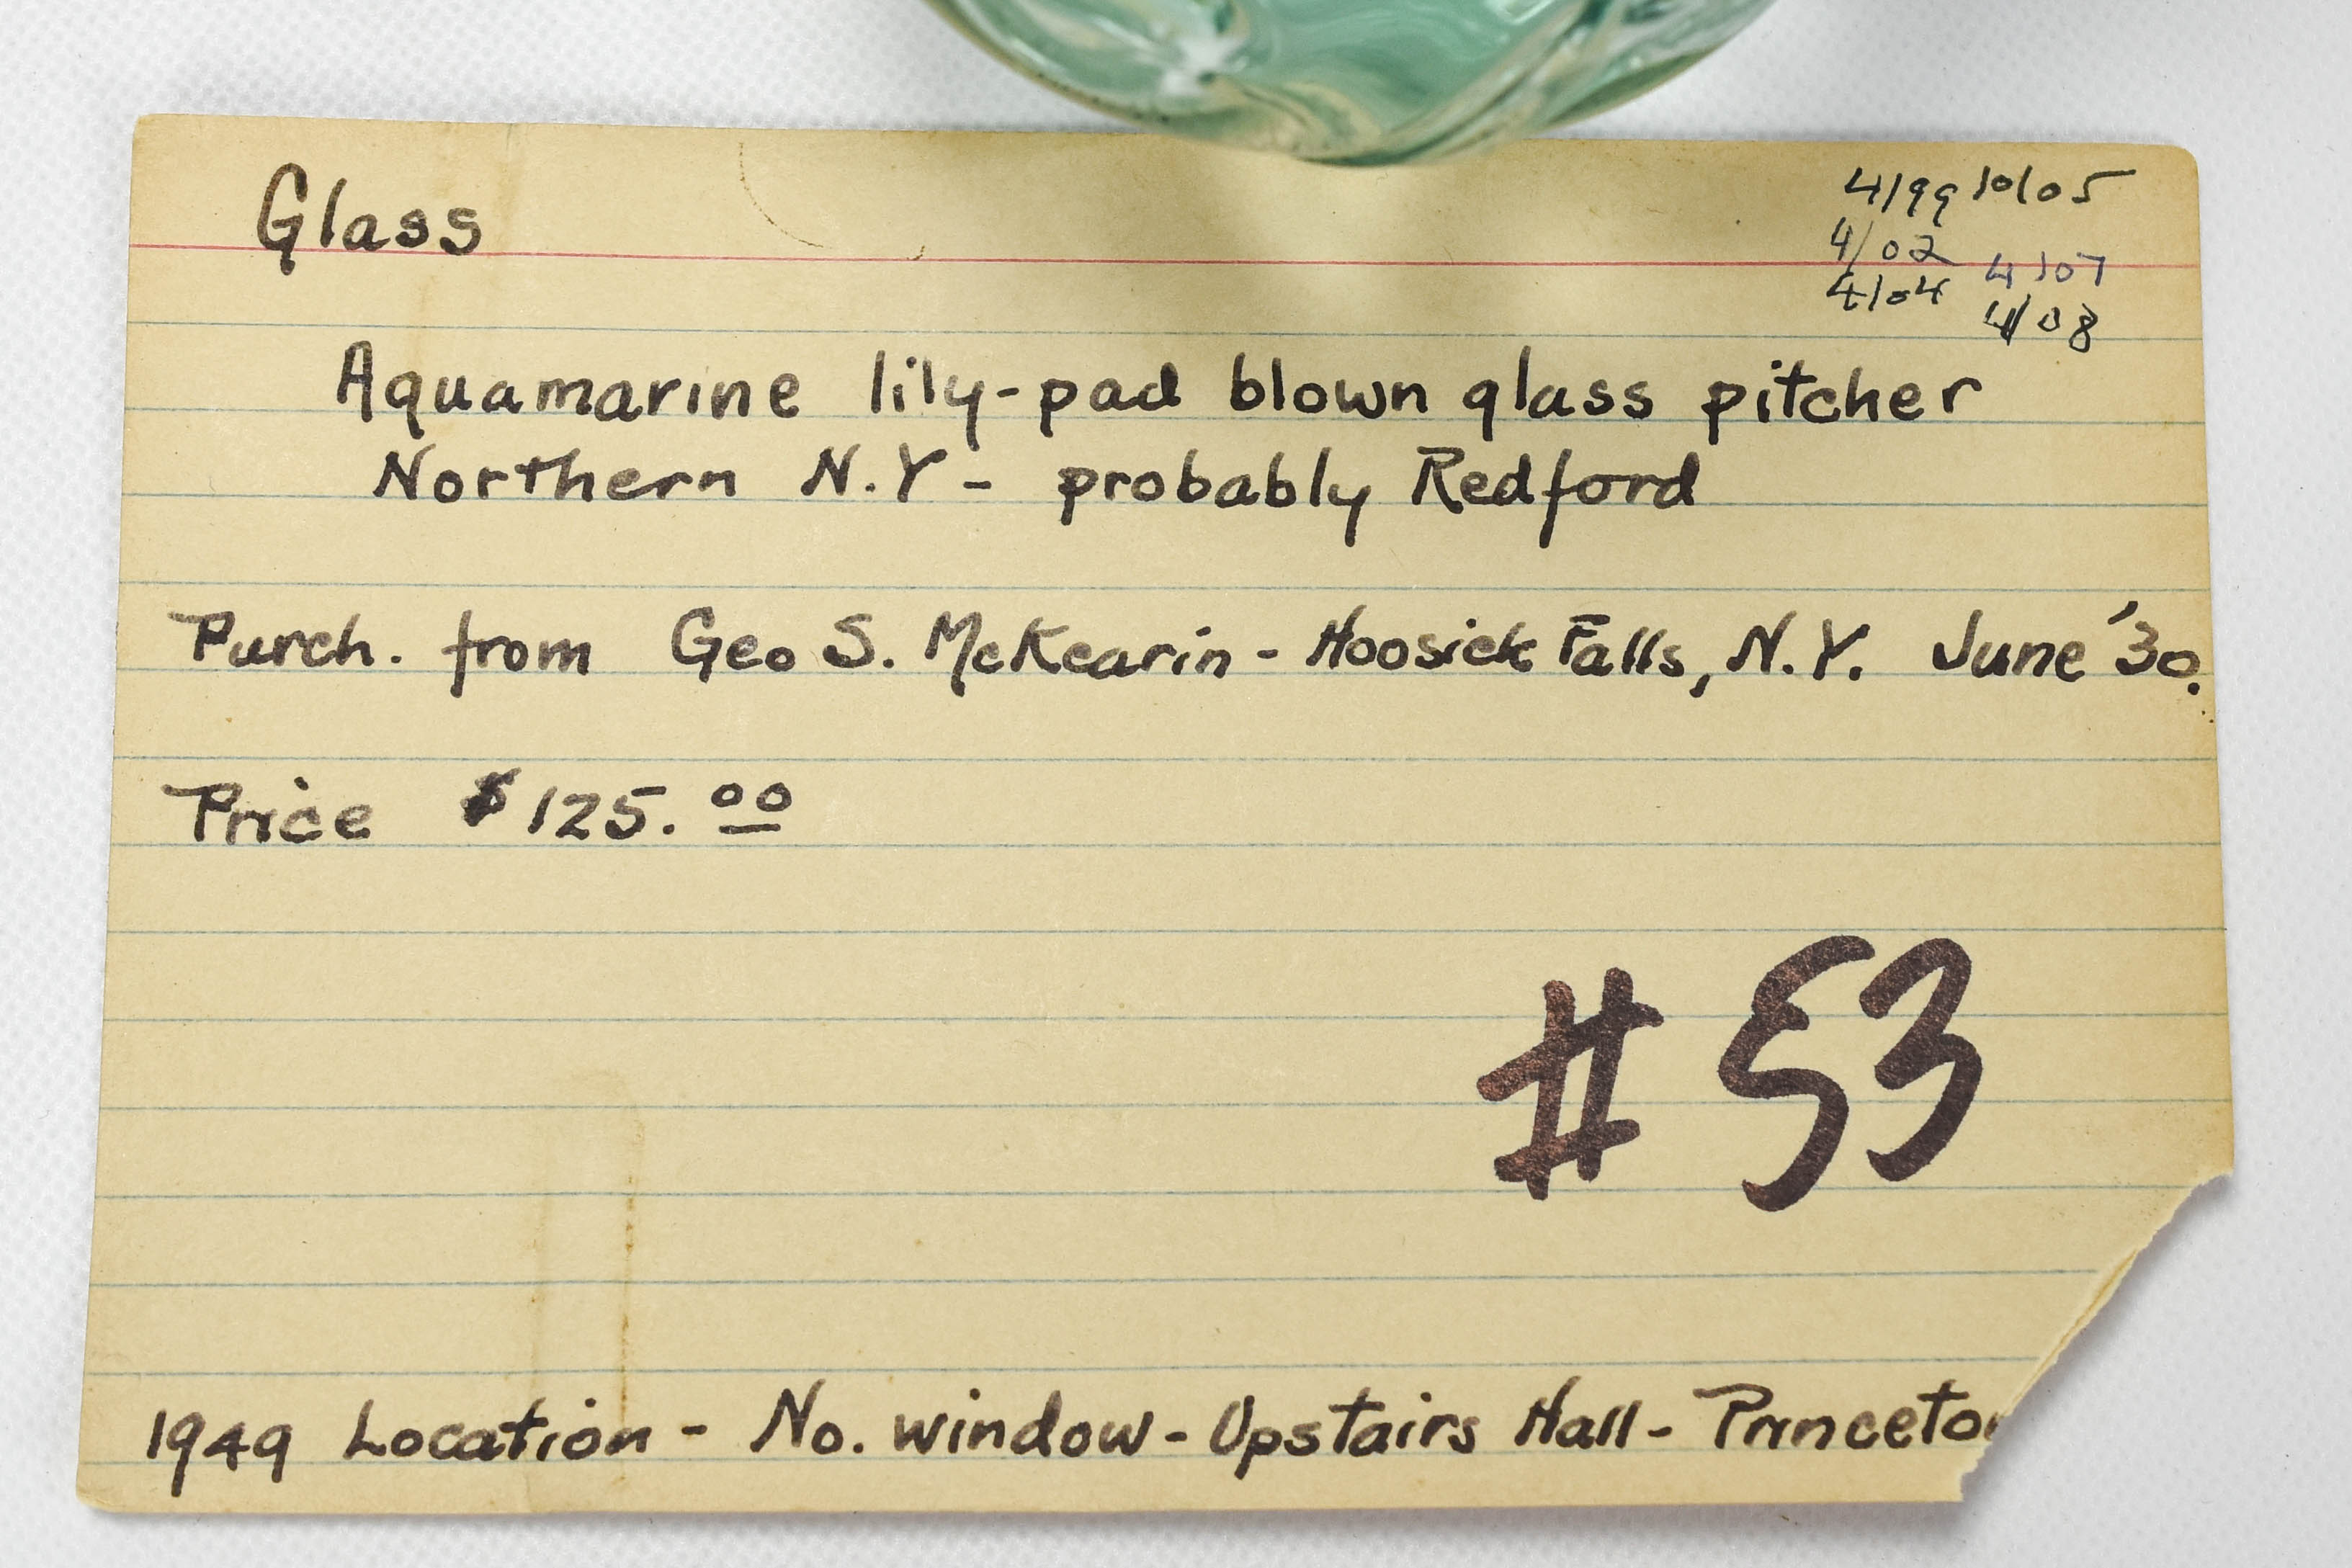 Glass
4/99 10/05
4/02 4/07
4/04 4/08
Aquamarine lily-pad blown glass pitcher
Northern N.Y - probably Redford
Purch. from Geo S. McKearin - Hoosick Falls, N.Y. June '30.
Price $125.00
# 53
1949 Location - No. window - Upstairs Hall - Princeton